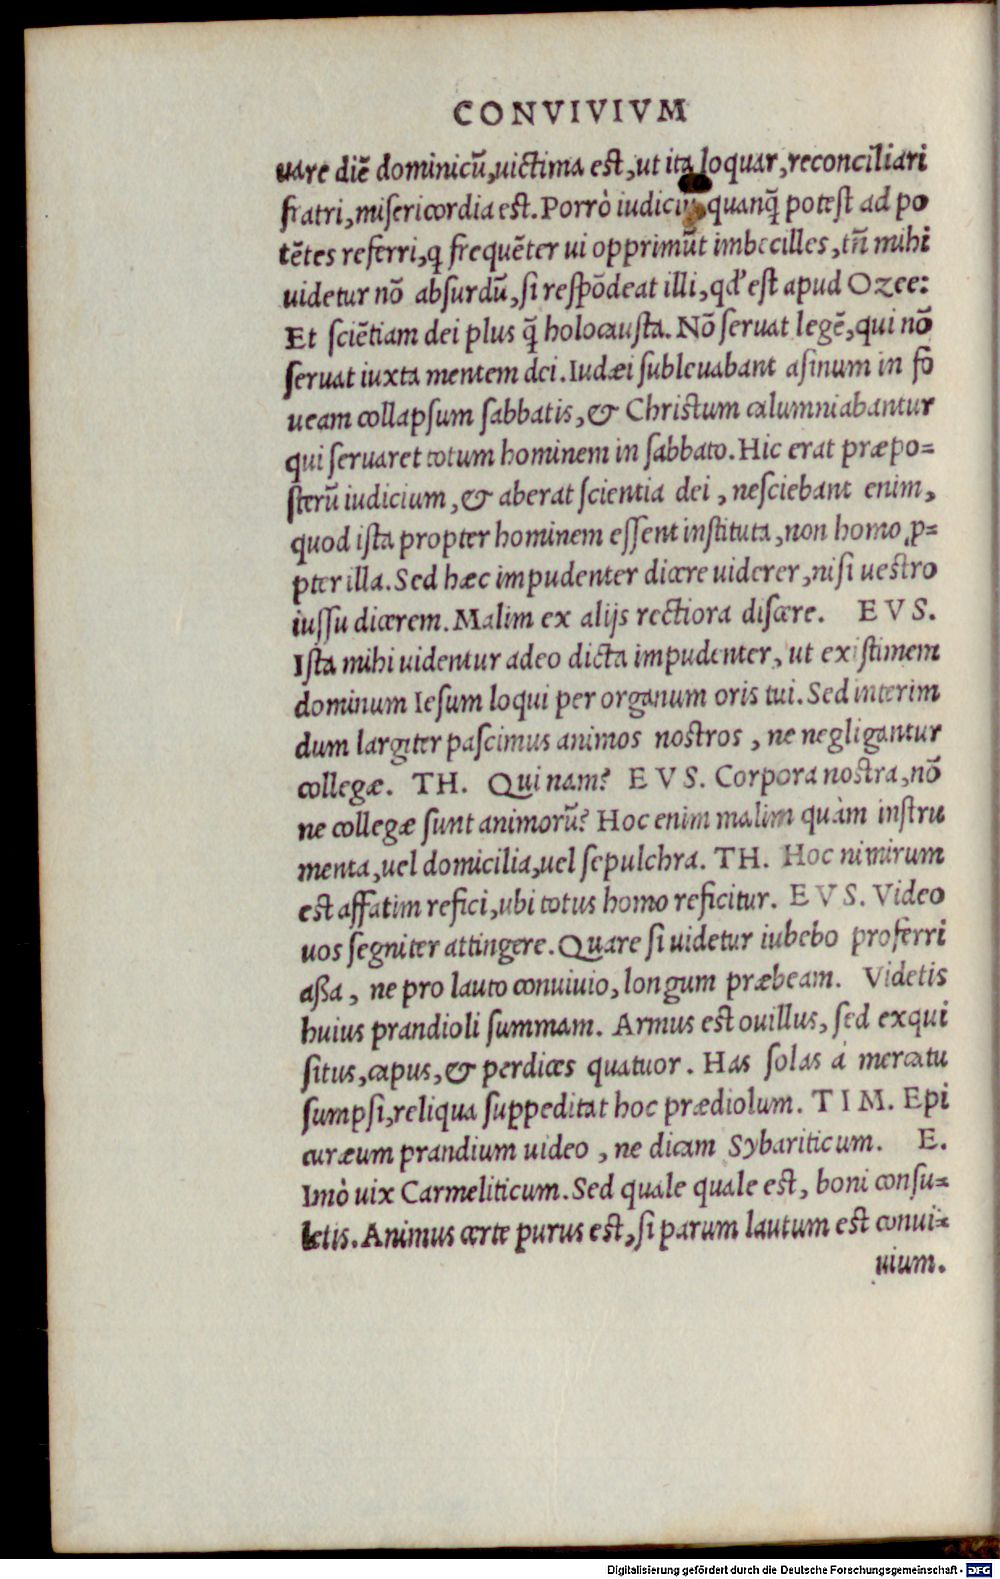 CONVIVIVM
uare diē dominicū, uictima est, ut ita loquar, reconciliari
fratri, misericordia est. Porrò iudiciū, quanq̄ potest ad po
tētes referri, q frequēter ui opprimūt imbecilles, tn̄ mihi
uidetur nō absurdū, si respōdeat illi, qd' est apud Ozee:
Et sciētiam dei plus q̄ holocausta. Nō seruat legē, qui nō
seruat iuxta mentem dei. Iudæi subleuabant asinum in fo
ueam collapsum sabbatis, & Christum calumniabantur
qui seruaret totum hominem in sabbato. Hic erat præpo=
sterū iudicium, & aberat scientia dei, nesciebant enim,
quod ista propter hominem essent instituta, non homo ꝓ=
pter illa. Sed hæc impudenter dicere uiderer, nisi uestro
iussu dicerem. Malim ex alijs rectiora discere. EVS.
Ista mihi uidentur adeo dicta impudenter, ut existimem
dominum Iesum loqui per organum oris tui. Sed interim
dum largiter pascimus animos nostros, ne negligantur
collegæ. TH. Qui nam? EVS. Corpora nostra, nō
ne collegæ sunt animorū? Hoc enim malim quàm instru
menta, uel domicilia, uel sepulchra. TH. Hoc nimirum
est affatim refici, ubi totus homo reficitur. EVS. Video
uos segniter attingere. Quare si uidetur iubebo proferri
aßa, ne pro lauto conuiuio, longum præbeam. Videtis
huius prandioli summam. Armus est ouillus, sed exqui
situs, capus, & perdices quatuor. Has solas à mercatu
sumpsi, reliqua suppeditat hoc prædiolum. TIM. Epi
curæum prandium uideo, ne dicam Sybariticum. E.
Imò uix Carmeliticum. Sed quale quale est, boni consu=
letis. Animus certe purus est, si parum lautum est conui=
uium.
Digitalisierung gefördert durch die Deutsche Forschungsgemeinschaft - DFG